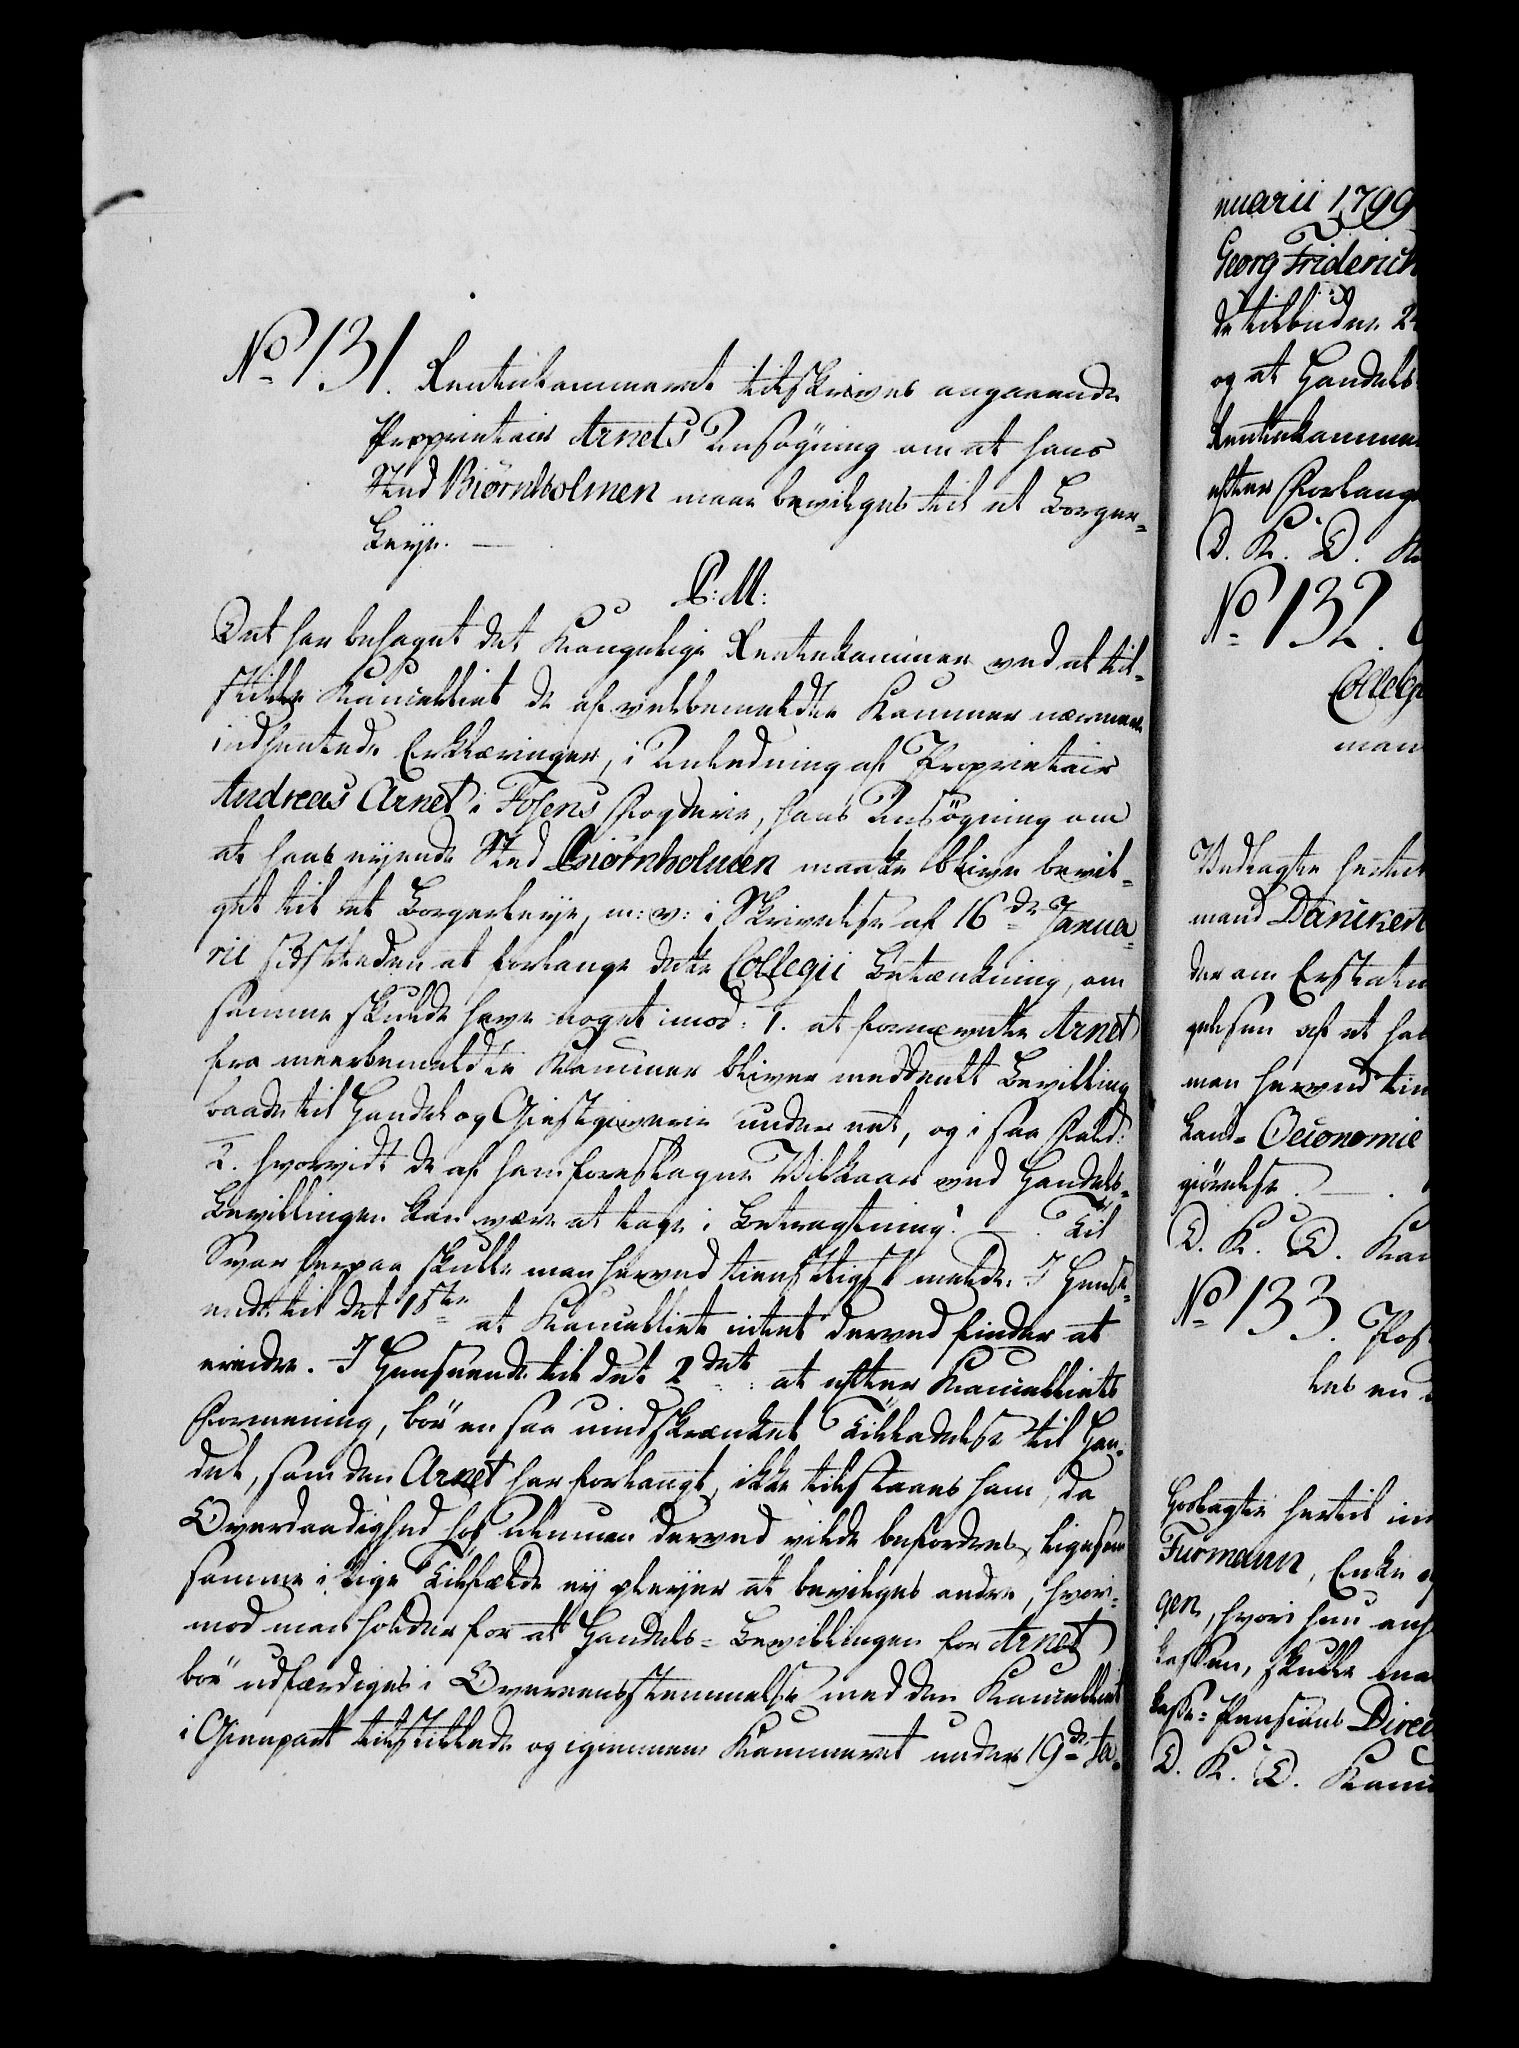 No 131. Rentekammeret tilskrives angaaende
Proprietair Arnets Ansøgning om at hans
Sted Biørnholmen maae bevilges til et Borger=
Leye. —
P: M:
Det har behaget det Kongelige Rentekammer ved at til=
stille Kancelliet de af velbemeldte Kammer nærmere
indhentede Erklæringer, i Anledning af Proprietair
Andreas Arnet i Fosens Fogderie, hans Ansøgning om
at hans eyende Sted Biørnholmen maatte blive bevil=
get til et Borgerleye, m: v: i Skrivelse af 16de Janua=
rii sidstleden at forlange dette Collegii Betænkning, om
samme skulde have noget imod: 1. at fornævnte Arnet
fra meerbemeldte Kammer bliver meddeelt Bevilling
baade til Handel og Giestgiverie under eet, og i saa Fald:
2. hvorvidt de af ham foreslagne Vilkaar ved Handels=
Bevillingen kan være at tage i Betragtning? — . Til
Svar herpaa skulle man herved tienstligst melde: I Hense=
ende til det 1ste at Kancelliet intet derved finder at
erindre. I Henseende til det 2det: at efter Kancelliets
Formening, bør en saa uindskrænket Tilladelse til Han=
del, som den Arnet har forlangt, ikke tilstaaes ham, da
Overdaadighed hos Almuen derved vilde befordres, ligesom
samme i lige Tilfælde ey pleyer at bevilges andre, hvori=
mod man holder for at Handels=Bevillingen for Arnet
bør udfærdiges i Overeensstemmelse med den Kancelliet
i Gienpart tilstillede og igiennem Kammeret under 19de Ja=
nuarii 1799
Georg Friderich
de tilbuden 2
og at Handels
Rentekamme
efter Forlang
D. K. D.
No 132.
Collegi
man
Vedlagte hertil
mand Danckert
der om Erstatn
gelsen af et ha
man herved tien
Land= Oeconomie
giørelse. —
D. K. D. Kan
No 133. Pos
les en
Hoslagte hertil in
Furmann, Enke
gen, hvori hun anh
kassen, skulle ma
kasse= Pensions Direc
D. K. D. Kanc